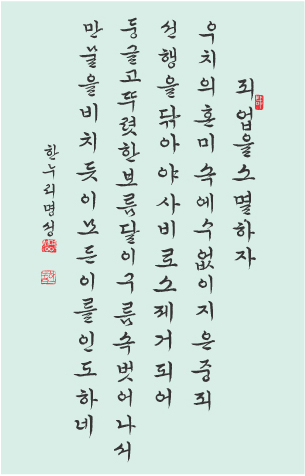 죄업을소멸하자
우치의혼미속에수없이지은중죄
선행을닦아야사비로소제거되어
둥글고뚜렷한보름달이구름속벗어나서
만물을비치듯이모든이를인도하네
한누리명성